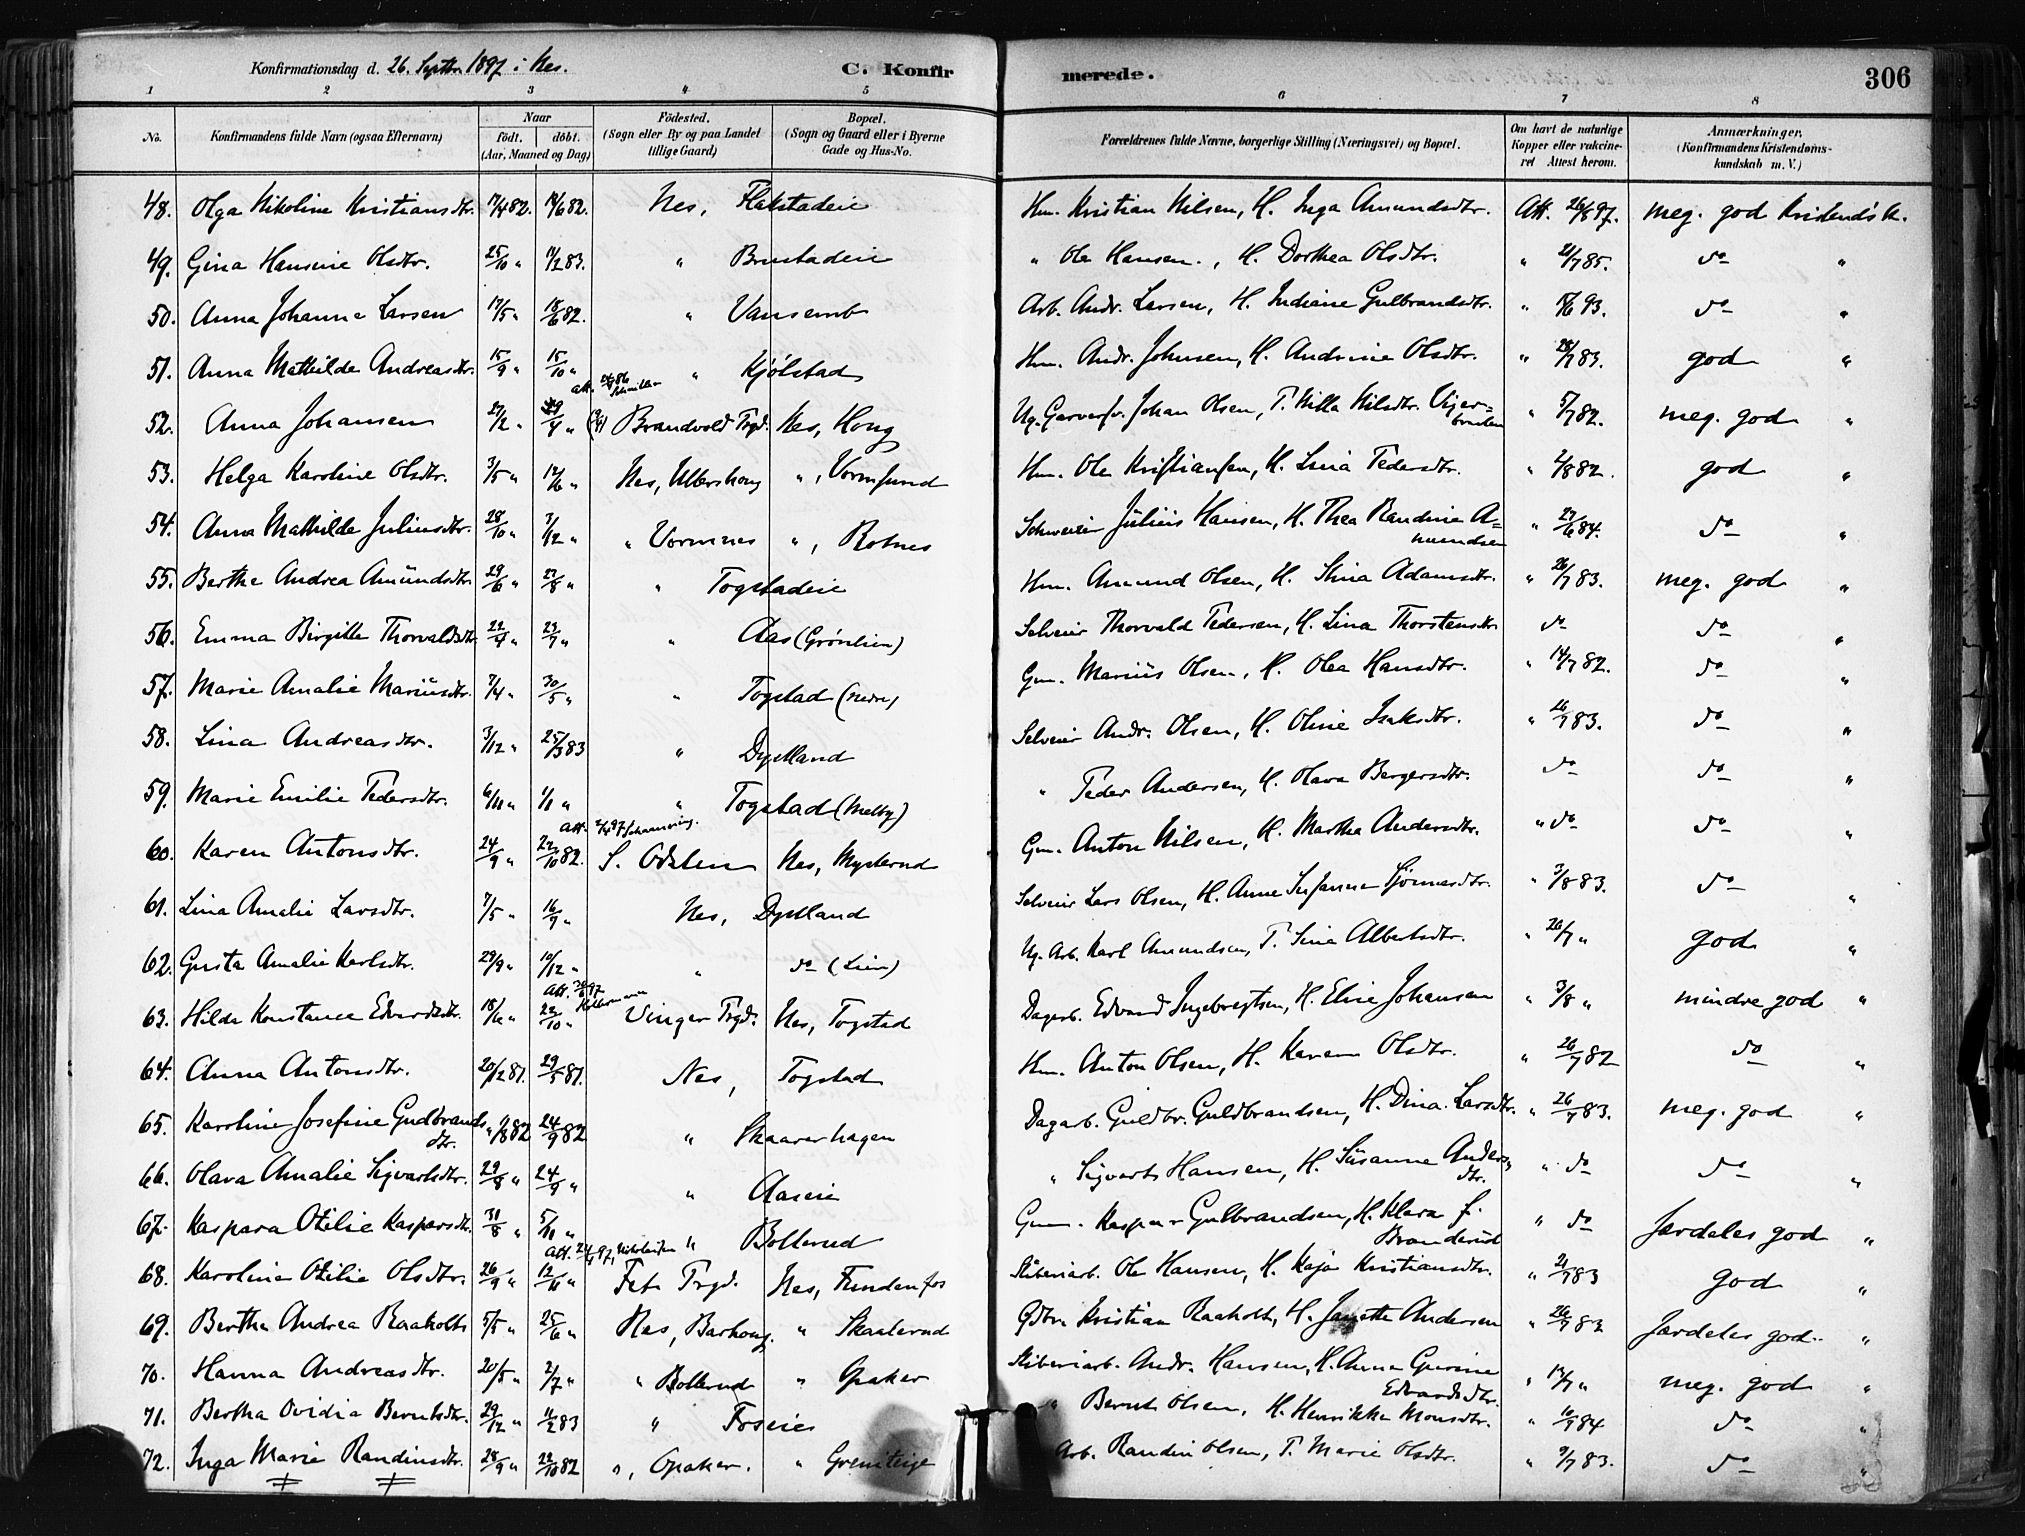 Konfirmationsdag d. 26. Septbr 1897 i Nes. C. Konfirmerede. 306
1 2 3 4 5 6 7 8
No. Konfirmandens fulde Navn (ogsaa Efternavn) Naar født. døbt. (Aar, Maaned og Dag) Fødested. (Sogn eller By og paa Landet tillige Gaard) Bopæl. (Sogn og Gaard eller i Byerne Gade og Hus-No. Forældrenes fulde Navne, borgerlige Stilling (Næringsvei) og Bopæl. Om havt de naturlige Kopper eller vakcineret Attest herom. Anmærkninger. (Konfirmandens Kristendomskundskab m. V.)
48. Olga Nikoline Kristiansdtr. 17/4 82. 18/6 82. Nes, Flakstadeie Hm. Kristian Nilsen, H. Inga Amundsdtr. Att. 26/8 97. meg. god Kristends k.
49. Gina Hansine Olsdtr. 25/10 " 11/2 83. " Brustadeie " Ole Hansen, H. Dorthea Olsdtr. " 21/7 85. do "
50. Anna Johanne Larsen 17/5 " 18/6 82. " Vansemb Arb. Andr. Larsen, H. Indiane Gulbrandsdtr. " 18/6 93. do "
51. Anna Mathilde Andreasdtr. 15/9 " 15/10 " " Kjølstad Hm. Andr. Johnsen, H. Andrine Olsdtr. " 28/7 83. god "
52. Anna Johansen 27/2 " 29/4 " Brandvold Prgd. Nes, Houg Ug. Garversv. Johan Olsen, P. Milla Nilsdtr. " 5/7 82. meg. god "
53. Helga Karoline Olsdtr. 3/5 " 12/6 " Nes, Ullershoug ", Vormsund Hm. Ole Kristiansen, H. Lina Pedersdtr. " 2/8 82. god "
54. Anna Mathilde Juliusdtr. 28/10 " 3/12 " " Vormnes ", Rotnes Schweizer Julius Hansen, H. Thea Randine Amundsen " 27/6 84. do "
55. Berthe Andrea Amundsdtr. 29/6 " 27/8 " " Togstadeie Hm. Amund Olsen, H. Stina Adamsdtr. " 26/7 83. meg. god "
56. Emma Birgitte Thorvaldsdtr. 22/4 " 23/7 " " Aas (Grönlien) Selveier Thorvald Pedersen, H. Lina Thorstensdtr. do do "
57. Marie Amalie Mariusdtr. 7/4 " 30/5 " " Togstad (nedre) Gm. Marius Olsen, H. Olea Hansdtr. " 14/7 82. do "
58. Lina Andreasdtr. 3/12 " 25/3 83 " Dystland Selveier Andr. Olsen, H. Oline Isaksdtr. " 26/7 83. do "
59. Marie Emilie Pedersdtr. 6/11 " 1/1 " " Togstad (Melby) " Peder Andersen, H. Olava Bergersdtr. do do "
60. Karen Antonsdtr. 24/9 " 22/10 82. S. Odalen Nes, Mysterud Gm. Anton Nilsen, H. Marthea Andersdtr. " do do "
61. Lina Amalie Larsdtr. 7/5 " 16/9 " Nes, Dystland Selveier Lars Olsen, H. Anne Susanna Gjörmesdtr. " 3/8 83. do "
62. Gusta Amalie Karlsdtr. 29/9 " 10/12 " " do (Lien) Ug. Arb. Karl Amundsen, P. Sine Albertsdtr. " 26/7 " god "
63. Hilda Konstance Edvardsdtr. 18/6 " 22/10 " Vinger Prgd. Nes, Togstad Dagarb. Edvard Ingebregtsen, H. Elise Johansen " 3/8 " mindre god "
64. Anna Antonsdtr. 20/2 81. 29/5 81. Nes, Togstad Hm. Anton Olsen, H. Karen Olsdtr. " 26/7 82 do "
65. Karoline Josefine Guldbrandsdtr. 1/8 82 24/9 82 " Skaarerhagen Dagarb. Guldbr. Guldbrandsen, H. Dina Larsdtr. " 26/7 83. meg. god "
66. Olava Amalie Sigvartsdtr. 29/8 " 24/9 " " Aaseie " Sigvart Hansen, H. Susanne Andersdtr. " do do "
67. Kaspara Otilie Kaspersdtr. 31/8 " 5/11 " " Bollerud Gm. Kasper Gulbrandsen, H. Klara f. Branderud " do særdeles god "
68. Karoline Otilie Olsdtr. 26/9 " 12/11 " Fet Prgd. Nes, Fundenfos Stiberiarb. Ole Hansen, H. Kaja Kristiansdtr. " 21/7 83 god "
69. Berthe Andrea Raaholt 5/5 " 25/6 " Nes, Barhoug. " Skaalerud Gdbr. Kristian Raaholt, H. Janette Andersen " 26/7 83 særdeles god. "
70. Hanna Andreasdtr. 20/5 " 2/7 " " Bollerud " Opaker Stiberiarb. Andr. Hansen, H. Anna Gurine Edvardsdtr. " 17/7 " meg. god "
71. Bertha Ovidia Berntsdtr. 29/12 " 11/2 83 " Foseies " Bernt Olsen, H. Henrikke Monsdtr. " 16/7 84 do "
72. Inga Marie Randinsdtr. 28/9 " 22/10 82 ", Opaker. " Greniteige Arb. Randin Olsen, P. Marie Olsdtr. " 9/7 83. do "